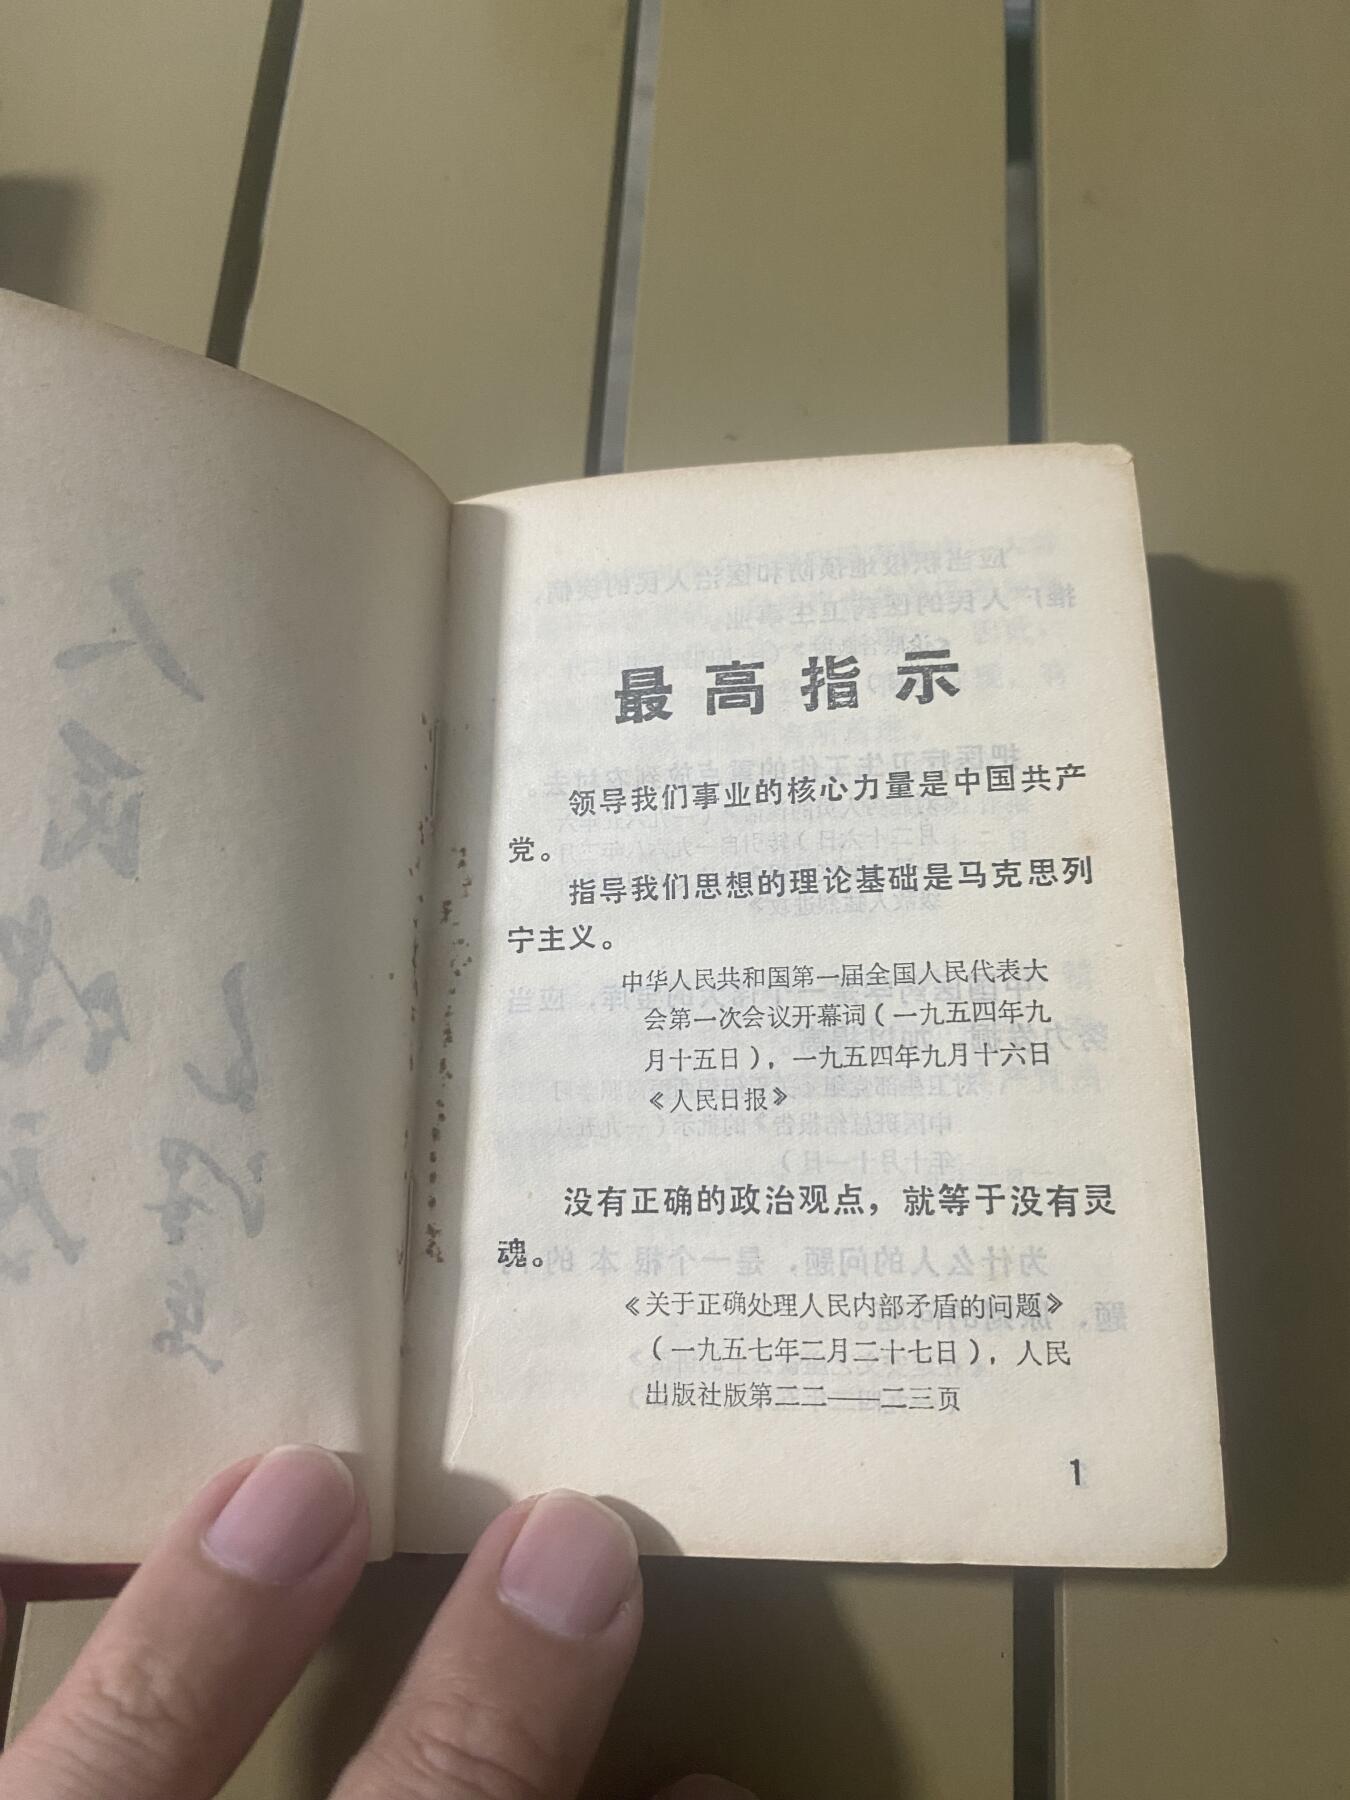 最高指示
领导我们事业的核心力量是中国共产
党。
指导我们思想的理论基础是马克思列
宁主义。
中华人民共和国第一届全国人民代表大
会第一次会议开幕词（一九五四年九
月十五日），一九五四年九月十六日
《人民日报》
没有正确的政治观点，就等于没有灵
魂。
《关于正确处理人民内部矛盾的问题》
（一九五七年二月二十七日），人民
出版社版第二二——二三页
1